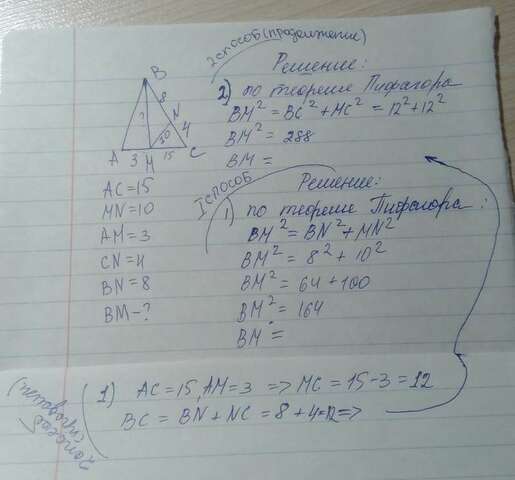 2 способ (продолжение)
Решение:
2) по теореме Пифагора
BM² = BC² + MC² = 12² + 12²
BM² = 288
BM =
B
8
?
N
4
10
A 3 M 15 C
AC=15
MN=10
AM=3
CN=4
BN=8
BM-?
I способ
Решение:
1) по теореме Пифагора:
BM² = BN² + MN²
BM² = 8² + 10²
BM² = 64 + 100
BM² = 164
BM =
1) AC=15, AM=3 => MC = 15-3 = 12
BC = BN + NC = 8 + 4 = 12 =>
2 способ